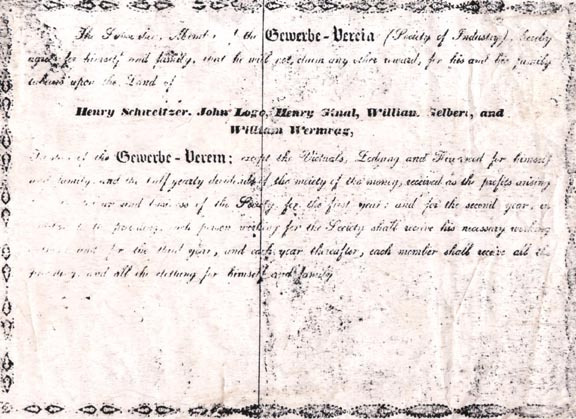 The Subscriber, Member of the Gewerbe-Verein (Society of Industry), hereby
agrees for himself and family, that he will not claim any other reward, for his and his family
labors upon the Land of
Henry Schweitzer, John Loge, Henry Knal, William Selbert, and
William Wermrag,
of the Gewerbe-Verein; except the Victuals, Lodging and Firewood for himself
and family, and the half yearly dividends of the moiety of the money, received as the profits arising
and business of the Society for the first year; and for the second year, in
each person working for the Society shall receive his necessary working
and for the third year, and each year thereafter, each member shall receive all the
and all the clothing for himself and family